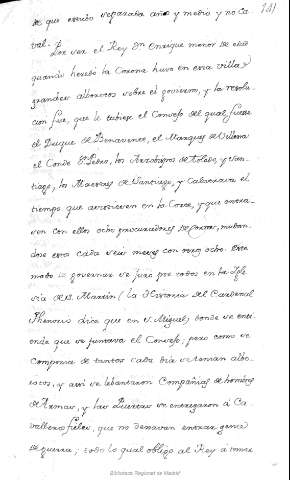 181
de que estubo separada año y medio y no ca
val. Por ser el Rey Dn Enrique menor de edad
quando heredó la Corona huvo en esta villa
grandes alborotos sobre el govierno, y la resolu
cion fue, que le tubiese el Consejo del qual fuese
el Duque de Benavente, el Marques de Villena
el Conde Dn Pedro, los Arzobispos de Toledo, y San
tiago, los Maestres de Santiago, y Calatrava el
tiempo que asistiesen en la Corte, y que entra
sen con ellos ocho procuradores de Cortes, mudan
dose esta cada seis meses con otros ocho. Este
modo de governar se juró por todos en la Igle
sia de S. Martin (la Historia del Cardenal
dice que en S. Miguel) donde se enti
ende que se juntava el Consejo; pero como se
componia de tantos cada dia se temian albo
rotos, y asi se lebantaron Compañias de hombres
de Armas, y las Puertas se entregaron á Ca
valleros fieles, que no dexavan entrar gente
de guerra; todo lo qual obligo al Rey á tomar
Biblioteca Regional de Madrid